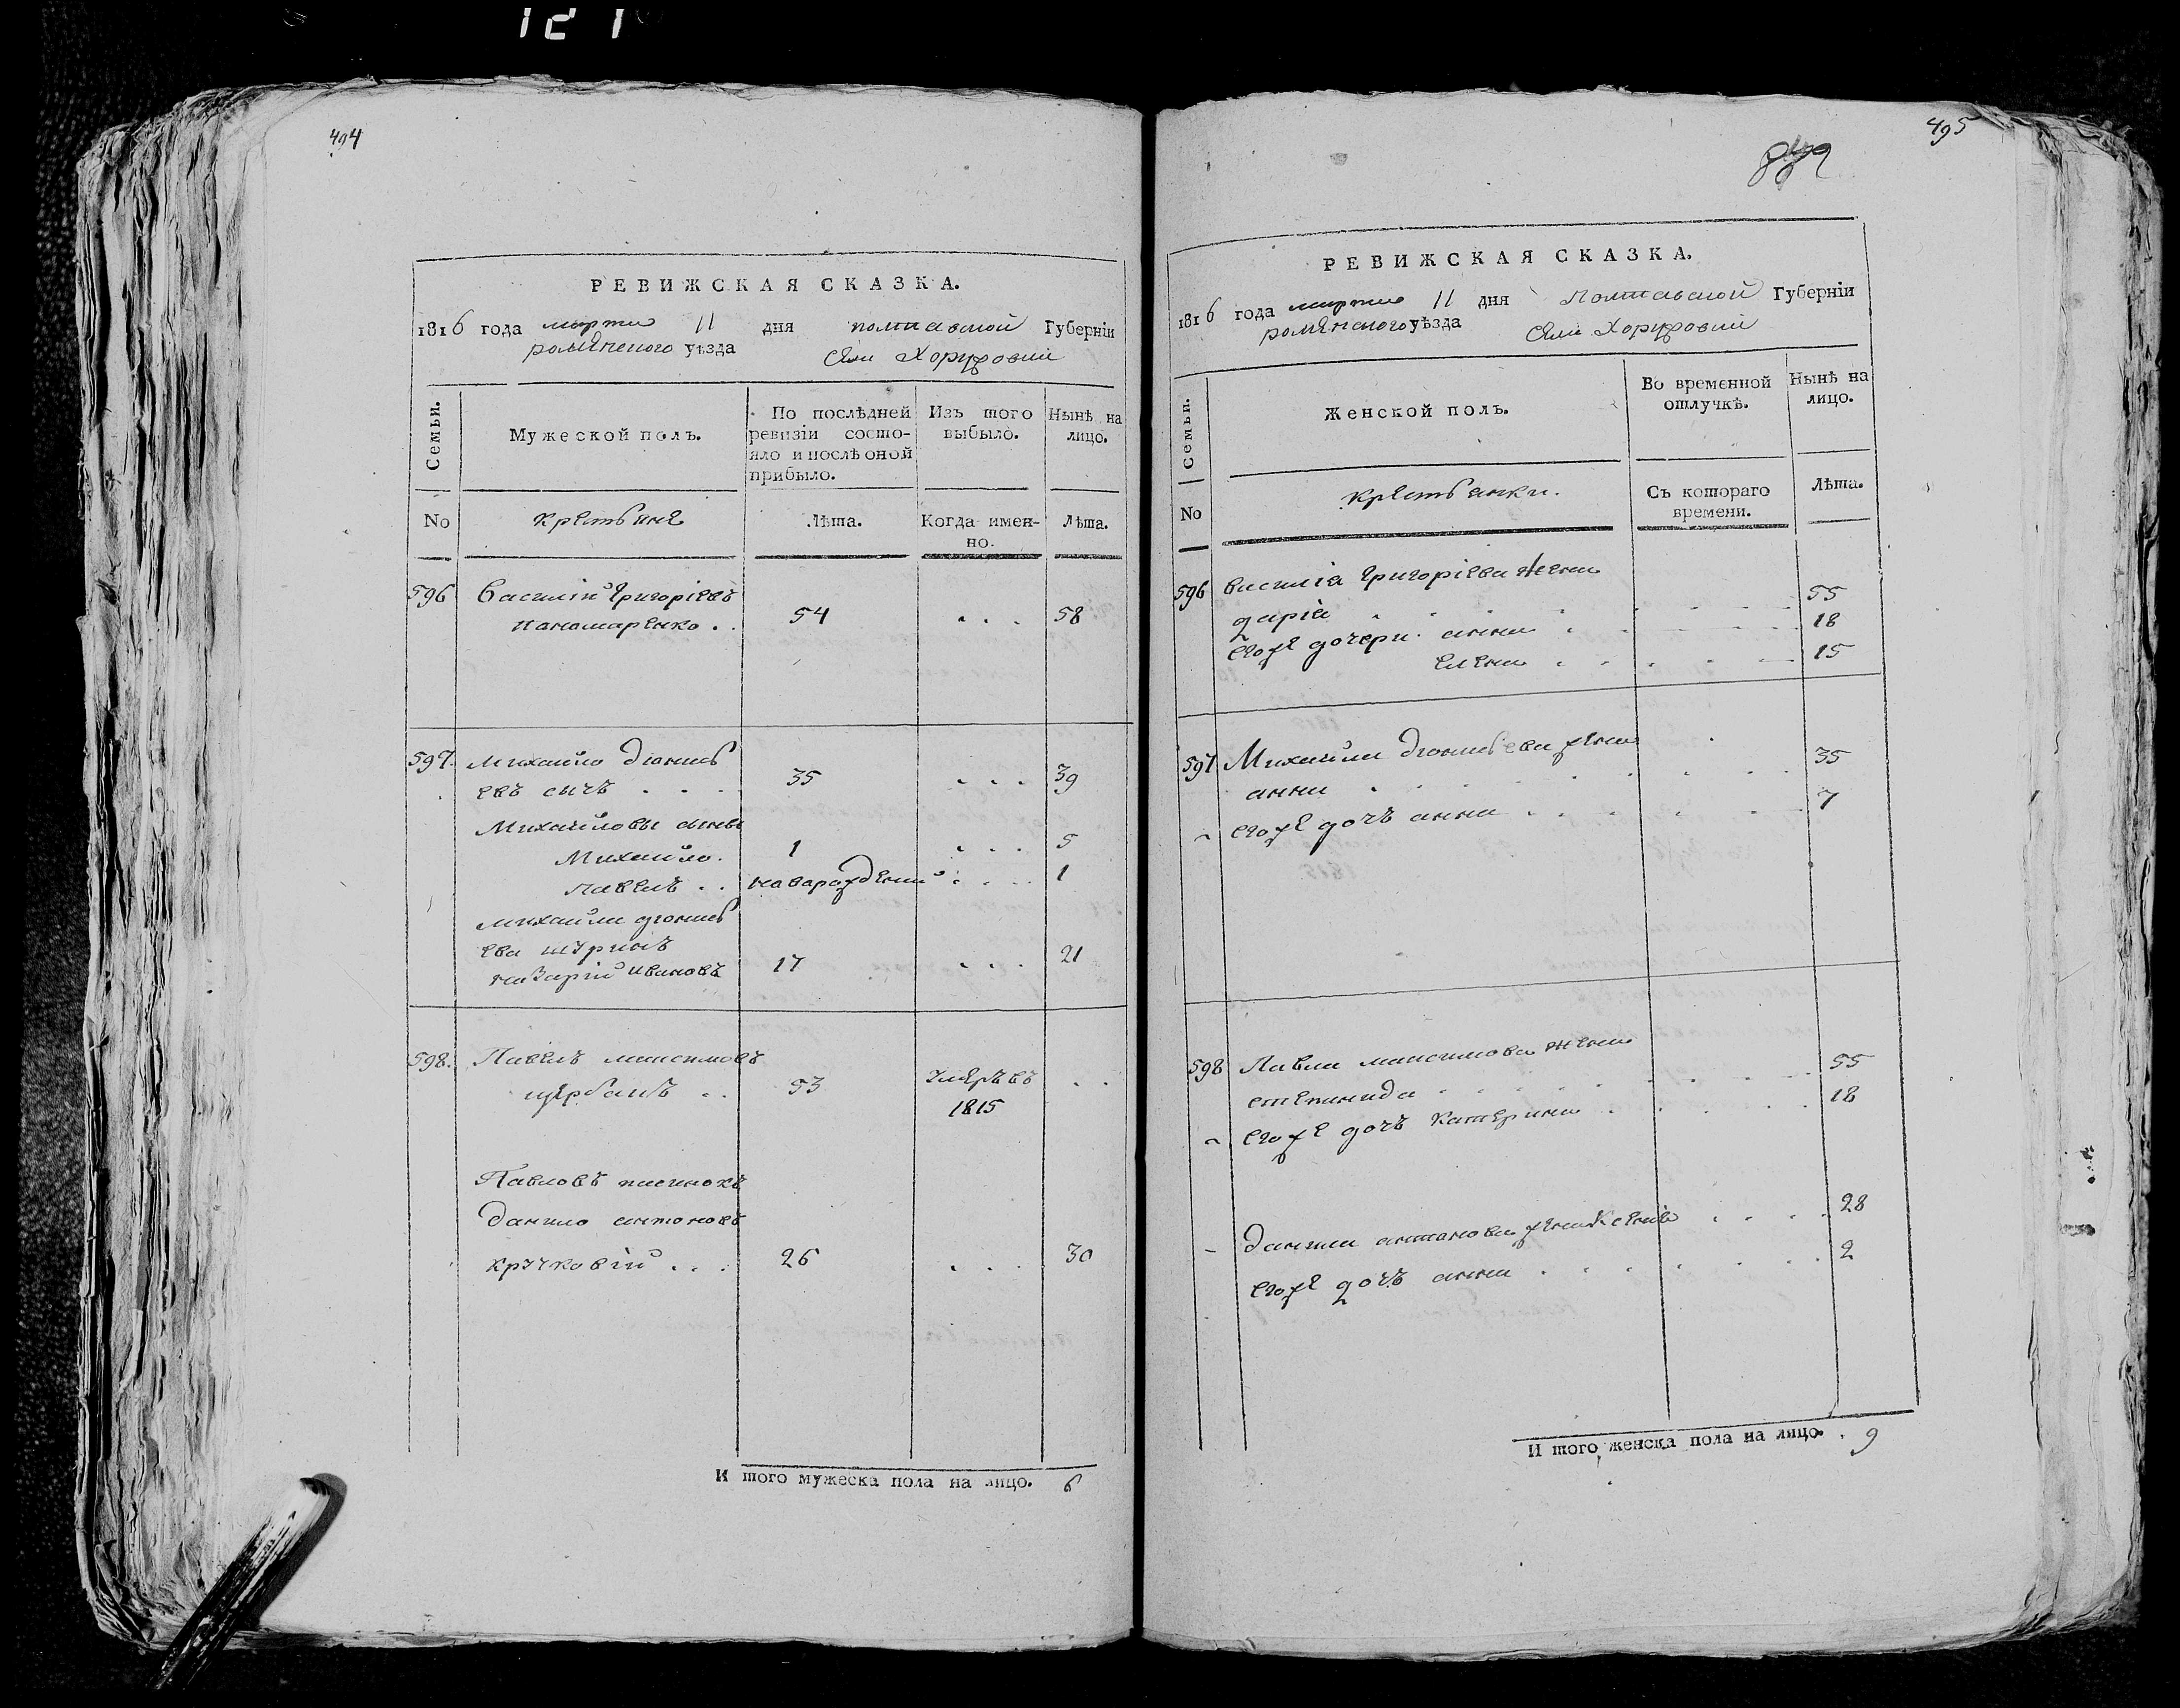 494
РЕВИЖСКАЯ СКАЗКА.
1816 года марта 11 дня полтавской Губерніи
роменского уѣзда села Хоружовки
Семьи.
Мужеской полъ.
По послѣдней ревизіи состо-
яло и послѣ оной
прибыло.
Изъ того
выбыло.
Нынѣ на
лицо.
No
крестьяне
Лѣта.
Когда имен-
но.
Лѣта.
596 Василій Григоріевъ
панамаренко . . 54 . . . 58
597. Михайло дионись
евъ сычъ . . . 35 . . . 39
Михайловы сыны
Михайло. 1 . . . 5
павелъ . . новарожденній . . . 1
михайла дионись
ева шуринъ
назарій ивановъ 17 . . . 21
598. Павелъ максимовъ
щербакъ . . 53 умеръ въ . .
1815
Павловъ пасинокъ
данило антоновъ
кручковій . . . 26 . . . 30
И того мужеска пола на лицо. 6
495
РЕВИЖСКАЯ СКАЗКА.
1816 года марта 11 дня Полтавской Губерніи
роменского уѣзда села Хоружовки
Семьи.
Женской полъ.
Во временной
отлучкѣ.
Нынѣ на
лицо.
No
крестьянки.
Съ котораго
времени.
Лѣта.
596 василія григоріева жена
дарія 55
егоже дочери. анна 18
елена 15
597 Михайла дионисьева жена
анна 35
егоже дочь анна 7
598 Павла максимова жена
степанида 55
егоже дочь катерина 18
данила антонова жена Ксенія 28
егоже дочь анна 2
И того женска пола на лицо. 9